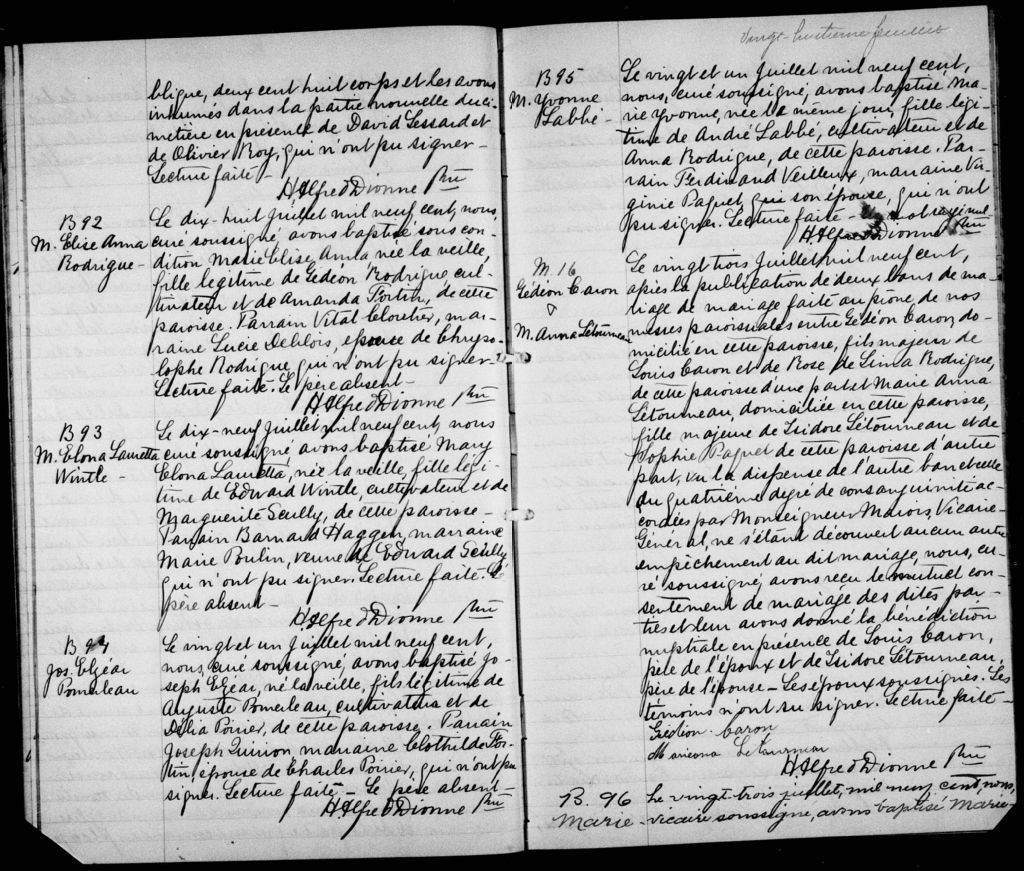 bligue, deux cent huit corps et les avons
inhumés dans la partie nouvelle du ci-
metière en présence de David Lessard et
de Olivier Roy, qui n'ont pu signer -
Lecture faite -
H Alfred Dionne Ptre
B 92
M. Elise Anna
Rodrigue -
Le dix-huit juillet mil neuf cent, nous,
curé soussigné, avons baptisé sous con-
dition Marie Elise Anna née la veille,
fille légitime de Gédéon Rodrigue, cul-
tivateur et de Amanda Fortin, de cette
paroisse. Parrain Vital Cloutier, mar-
raine Lucie Deblois, épouse de Chryso-
lophe Rodrigue, qui n'ont pu signer.
Lecture faite. Le père absent -
H Alfred Dionne Ptre
B 93
M. Elona Lauretta
Wintle -
Le dix-neuf juillet mil neuf cent, nous
curé soussigné avons baptisé Mary
Elona Lauretta, née la veille, fille légi-
time de Edward Wintle, cultivateur et de
Marguerite Scully, de cette paroisse -
Parrain Barnard Haggen, marraine
Marie Poulin, veuve de Edward Scully
qui n'ont pu signer. Lecture faite. Le
père absent -
H Alfred Dionne Ptre
B 94
Jos. Elzéar
Pomerleau
Le vingt et un juillet mil neuf cent,
nous, curé soussigné, avons baptisé Jo-
seph Elzear, né la veille, fils légitime de
Auguste Pomerleau, cultivateur et de
Délia Poirier, de cette paroisse. Parrain
Joseph Quirion marraine Clothilde For-
tin, épouse de Charles Poirier, qui n'ont pu
signer. Lecture faite - Le père absent -
H Alfred Dionne Ptre
Vingt-huitième feuillet
B 95
M. Yvonne
Labbé -
Le vingt et un juillet mil neuf cent,
nous, curé soussigné, avons baptisé Ma-
rie Yvonne, née la même jour, fille légi-
time de André Labbé, cultivateur et de
Anna Rodrigue, de cette paroisse. Par-
rain Ferdinand Veilleux, marraine Vir-
ginie Paquet, son épouse, qui n'ont
pu signer. Lecture faite - mot rayé nul
H Alfred Dionne Ptre
M. 16
Gédéon Caron
&
M. Anna Létourneau
Le vingt trois juillet mil neuf cent,
après la publication de deux bans de ma-
riage de mariage faite au prone de nos
messes paroissiales entre Gédéon Caron, do-
micilié en cette paroisse, fils majeur de
Louis Caron et de Rose de Lima Rodrigue,
de cette paroisse d'une part et Marie Anna
Létourneau, domiciliée en cette paroisse,
fille majeure de Isidore Létourneau et de
Sophie Paquet de cette paroisse d'autre
part, vu la dispense de l'autre ban et celle
du quatrième degré de consanguinité ac-
cordées par Monseigneur Marois, Vicaire-
Général, ne s'étant découvert aucun autre
empêchement au dit mariage, nous, cu-
ré soussigné, avons reçu le mutuel con-
sentement de mariage des dites par-
ties et leur avons donné la bénédiction
nuptiale en présence de Louis Caron,
père de l'époux et de Isidore Létourneau,
père de l'épouse - Les époux soussignés. Les
témoins n'ont su signer. Lecture faite -
Gédéon Caron
Marieanna Letourneau
H Alfred Dionne Ptre
B. 96
Marie -
Le vingt-trois juillet, mil neuf cent, nous,
vicaire soussigné, avons baptisé Marie-